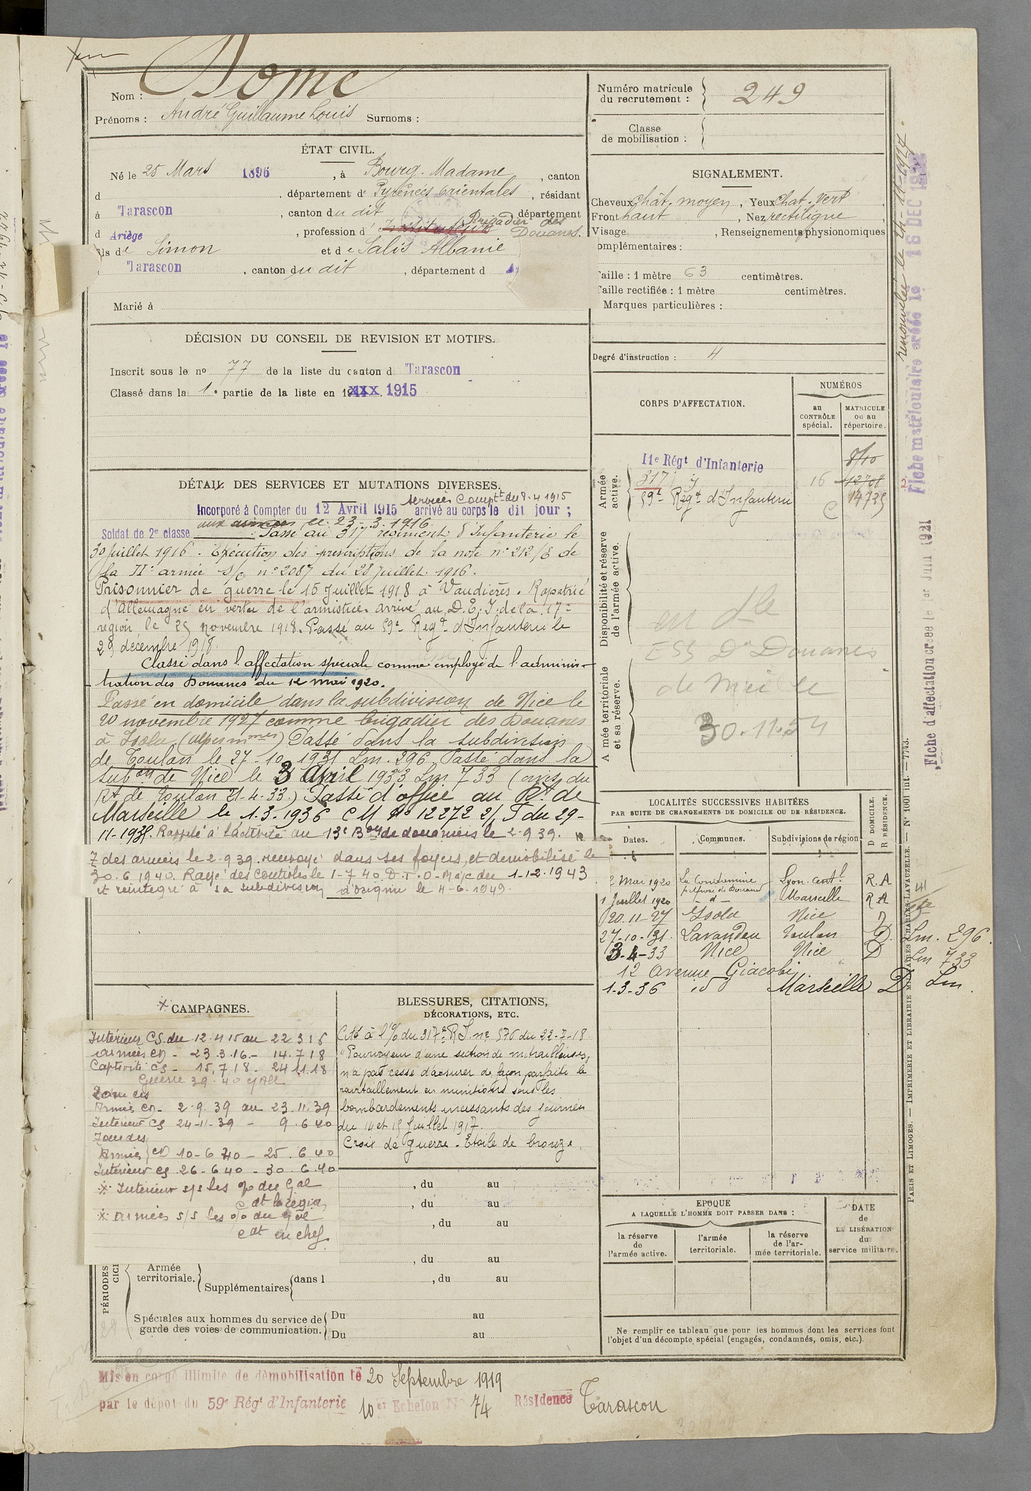 Nom : Dome
Prénoms : André Guillaume Louis Surnoms :
Numéro matricule du recrutement : 249
Classe de mobilisation :
ÉTAT CIVIL.
Né le 25 Mars 1896, à Bourg-Madame, canton
d , département d' Pyrénées Orientales, résidant
à Tarascon, canton du dit, département
d Ariège, profession d' Brigadier des Douanes.
fils de Simon et de Salis Albanie
Tarascon, canton du dit, département d
Marié à
SIGNALEMENT.
Cheveux chât. moyen, Yeux chat. vert
Front haut, Nez rectiligne
Visage , Renseignements physionomiques
complémentaires :
Taille : 1 mètre 63 centimètres.
Taille rectifiée : 1 mètre centimètres.
Marques particulières :
Degré d'instruction : 4
DÉCISION DU CONSEIL DE REVISION ET MOTIFS.
Inscrit sous le no 77 de la liste du canton d Tarascon
Classé dans la 1e partie de la liste en 1915
CORPS D'AFFECTATION.
NUMÉROS
au CONTRÔLE spécial.
MATRICULE ou au répertoire.
Armée active.
11e Régt d'Infanterie
317 "
59e Régt d'Infanterie
16
14735
Disponibilité et réserve de l'armée active.
Armée territoriale et sa réserve.
Douanes
30.11.54
DÉTAIL DES SERVICES ET MUTATIONS DIVERSES.
services comptt du 8-4 1915
Incorporé à Compter du 12 Avril 1915 arrivé au corps le dit jour ;
Soldat de 2e classe
aux armées le 23-3-1916.
Passé au 317 régiment d'Infanterie le
30 juillet 1916. Exécution des prescriptions de la note no 212/8 de
la IIe armée s/c no 2087 du 28 juillet 1916.
Prisonnier de guerre le 15 juillet 1918 à Vaudières. Rapatrié
d'Allemagne en vertu de l'armistice arrivé au D.C.I. de la 17e
région le 25 novembre 1918. Passé au 59e Régt d'Infanterie le
29 décembre 1918.
Classé dans l'affectation spéciale comme employé de l'adminis-
tration des Douanes du 12 mai 1920.
Passe en domicile dans la subdivision de Nice le
20 novembre 1927 comme brigadier des Douanes
à Isola (Alpes mmes) Passé dans la subdivision
de Toulon le 27-10-1931 Lm. 296. Passé dans la
subon de Nice le 3 Avril 1933 Lm 733 (avis du
Rt de Toulon 21-4-33.) Passé d'office au Rt de
Marseille le 1.3.1936 CM No 12272 2/I du 29-
11-1935. Rappelé à l'activité au 13e Bon de douaniers le 2-9-39.
Z des armées le 2.9.39. renvoyé dans ses foyers et démobilisé le
30.6.1940. Rayé des contrôles le 1-7-40. D.T.O. Maj. du 1-12-1943
et réintégré à sa subdivision d'origine le 4-6-1949.
LOCALITÉS SUCCESSIVES HABITÉES
PAR SUITE DE CHANGEMENTS DE DOMICILE OU DE RÉSIDENCE.
Dates. Communes. Subdivisions de région D. DOMICILE. R. RÉSIDENCE.
2 Mai 1920 La Condamine Lyon centl R.A
1 Juillet 1920 -d- Marseille R A
20.11.27 Isola Nice D
27-10-31 Lavandou Toulon D Lm. 296
3-4-33 Nice Nice D Lm 733
12 Avenue Giacobi
1-3-36 id Marseille D Lm
CAMPAGNES.
Intérieur CS du 12.4.15 au 22.3.16
armées CD - 23.3.16 - 14.7.18
Captivité CS - 15.7.18 - 24.11.18
Guerre 39-40 c/ All
Zone des
Armées CD - 2.9.39 au 23.11.39
Intérieur CS 24-11-39 - 9.6.40
Zone des
Armées CD 10-6-40 - 25.6.40
Intérieur CS 26-6-40 - 30.6.40
* Intérieur s/s les o/ du Gal
Cdt la région
* Armées s/s les o/ du Gal
Cdt en chef
BLESSURES, CITATIONS,
DÉCORATIONS, ETC.
Cité à l'o/ du 317e R.I. no 576 du 22-7-18
"Pourvoyeur d'une section de mitrailleuses,
n'a pas cessé d'assurer de façon parfaite le
ravitaillement en munitions sous les
bombardements incessants des journées
du 14 et 15 juillet 1917.
Croix de guerre. Etoile de bronze.
, du au
, du au
, du au
, du au
, du au
PÉRIODES
Armée territoriale. Supplémentaires dans l
Spéciales aux hommes du service de garde des voies de communication. Du au
Du au
ÉPOQUE
A LAQUELLE L'HOMME DOIT PASSER DANS :
la réserve de l'armée active.
l'armée territoriale.
la réserve de l'armée territoriale.
DATE de la LIBÉRATION du service militaire.
Ne remplir ce tableau que pour les hommes dont les services font
l'objet d'un décompte spécial (engagés, condamnés, omis, etc.).
Mis en congé illimité de démobilisation le 20 Septembre 1919
par le dépôt du 59e Rég't d'Infanterie 10er Echelon No 74 Résidence Tarascon
Fiche matriculaire créée le 16 DEC
Fiche d'affectation créée le 1er Juin 1921
PARIS ET LIMOGES. — IMPRIMERIE ET LIBRAIRIE MILITAIRES CHARLES-LAVAUZELLE.